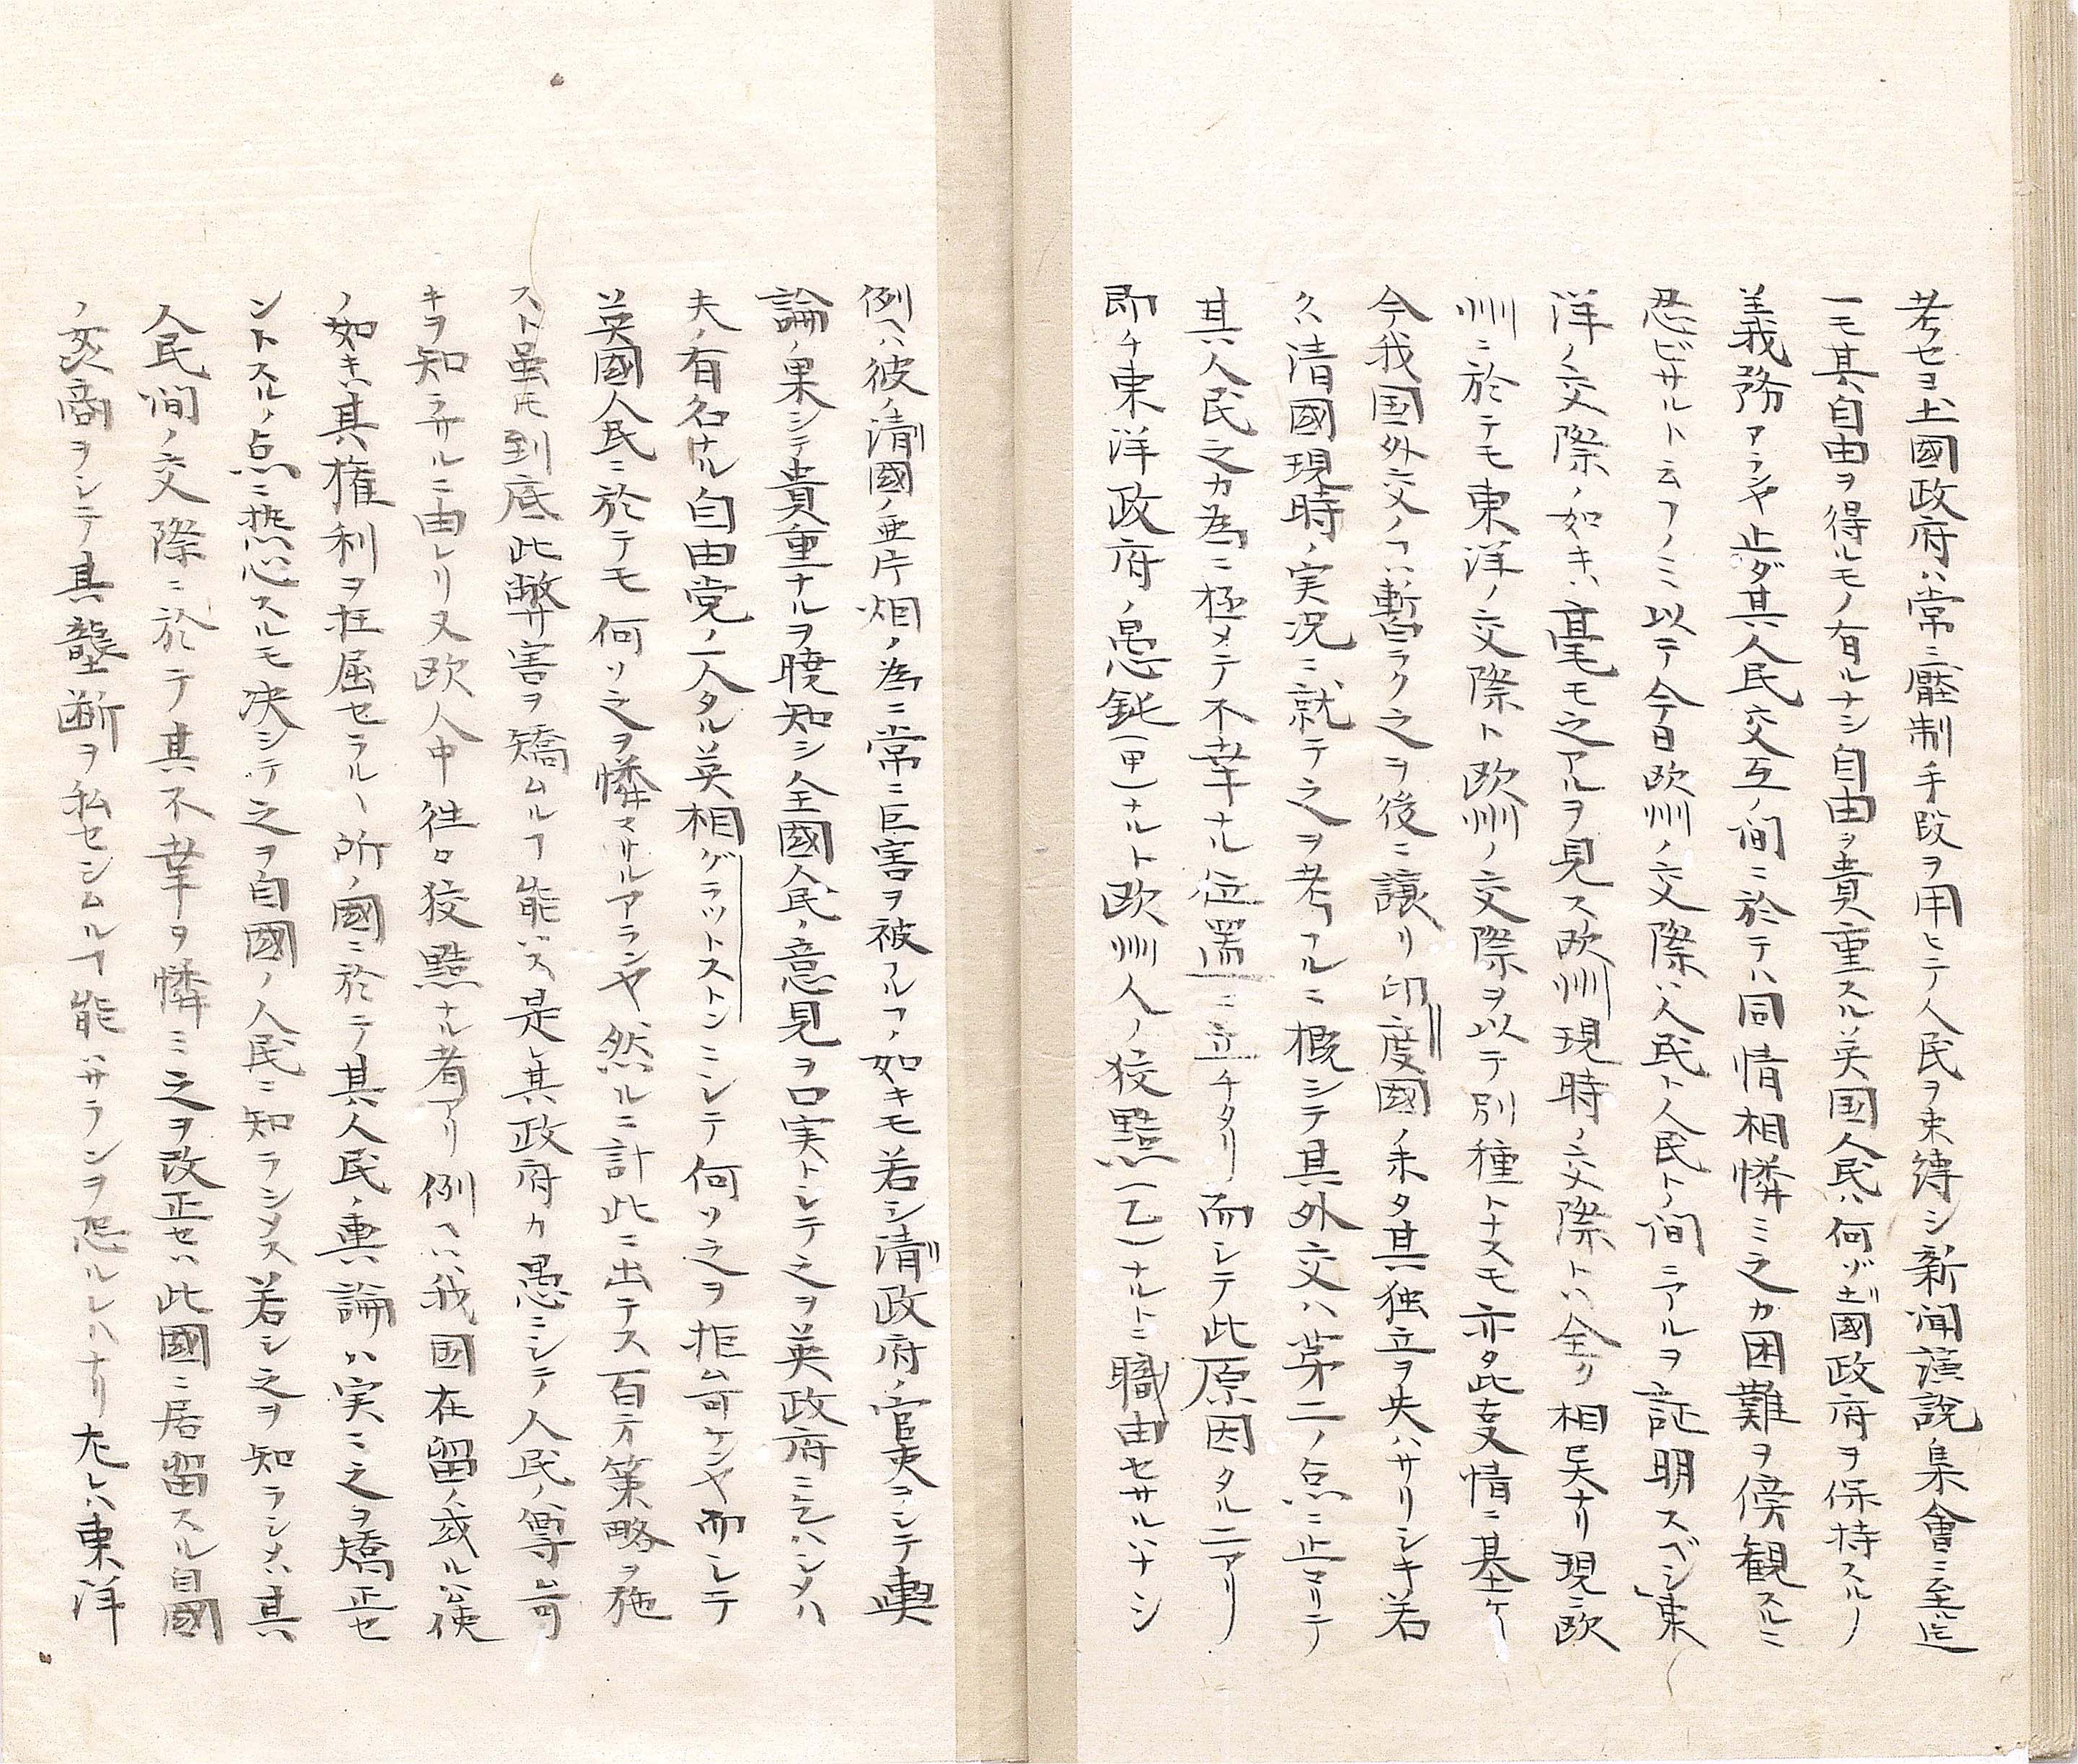 考セヨ土國政府ハ常ニ壓制手段ヲ用ヒテ人民ヲ束縛シ新聞演説集會ニ至迄
一モ其自由ヲ得ルモノ有ルナシ自由ヲ貴重スル英国人民ハ何ゾ土國政府ヲ保持スルノ
義務アランヤ止ダ其人民交互ノ间ニ於テハ同情相憐ミ之カ困難ヲ傍観スルニ
忍ビサルト云フノミ以テ今日欧洲ノ交際ハ人民ト人民トノ间ニアルヲ証明スベシ東
洋ノ交際ノ如キハ毫モ之アルヲ見ス欧洲現時ノ交際トハ全ク相異ナリ現ニ欧
洲ニ於テモ東洋ノ交際ト欧洲ノ交際ヲ以テ別種トナスモ亦タ此支情ニ基ケリ
今我国外交ノヿハ暫ラク之ヲ後ニ譲リ印度國ノ未タ其独立ヲ失ハサリシキ若
クハ清國現時ノ実況ニ就テ之ヲ考フルニ概シテ其外交ハ第二ノ点ニ止マリテ
其人民之カ為ニ極メテ不幸ナル位置ニ立チタリ而シテ此原因タル二アリ
即チ東洋政府ノ愚鈍(甲)ナルト欧洲人ノ狡黠(乙)ナルトニ職由セサルハナシ
例ヘハ彼ノ清國ノ亜片烟ノ為ニ常ニ巨害ヲ被フルヿノ如キモ若シ清政府ノ官吏ヲシテ輿
論ノ果シテ貴重ナルヲ暁知シ全國人民ノ意見ヲ口実トシテ之ヲ英政府ニ乞ハシメハ
夫ノ有名ナル自由党ノ一人タル英相グラットストンニシテ何ソ之ヲ拒ム可ケンヤ而シテ
英國人民ニ於テモ何ソ之ヲ憐マサルアランヤ然ルニ計此ニ出テス百方策略ヲ施
スト虽𪜈到底此弊害ヲ矯ムルヿ能ハス是レ其政府カ愚ニシテ人民ノ尊ム可
キヲ知ラザルニ由レリ又欧人中往々狡黠ナル者アリ例ヘハ我国在留ノ或ル公使
ノ如キハ其権利ヲ枉屈セラルヽ所ノ國ニ於テ其人民ノ輿論ハ実ニ之ヲ矯正セ
ントスルノ点ニ热心スルモ决シテ之ヲ自國ノ人民ニ知ラシメス若シ之ヲ知ラシメハ其
人民间ノ交際ニ於テ其不幸ヲ憐ミ之ヲ改正セハ此國ニ居留スル自國
ノ奸商ヲシテ其壟断ヲ私セシムルヿ能ハサランヲ恐ルレハナリ左レハ東洋